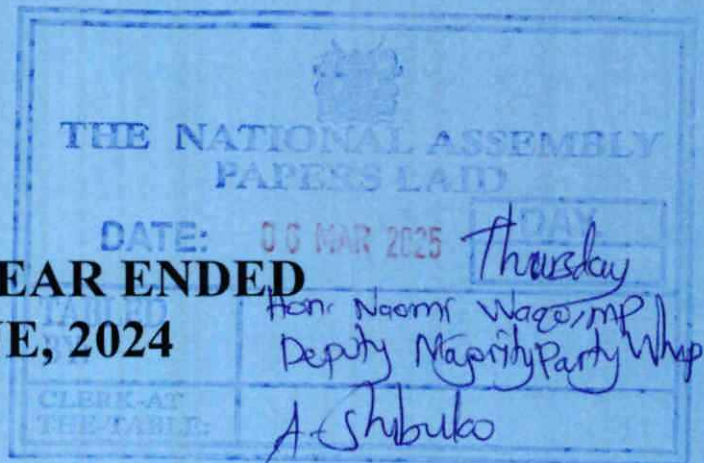 THE NATIONAL ASSEMBLY
PAPERS LAID
DATE: 06 MAR 2025 DAY
Thursday
EAR ENDED
TABLED
BY:
Hon. Naomi Waqo, MP
E, 2024
Deputy Majority Party Whip
CLERK-AT
THE-TABLE:
A. Shibuko